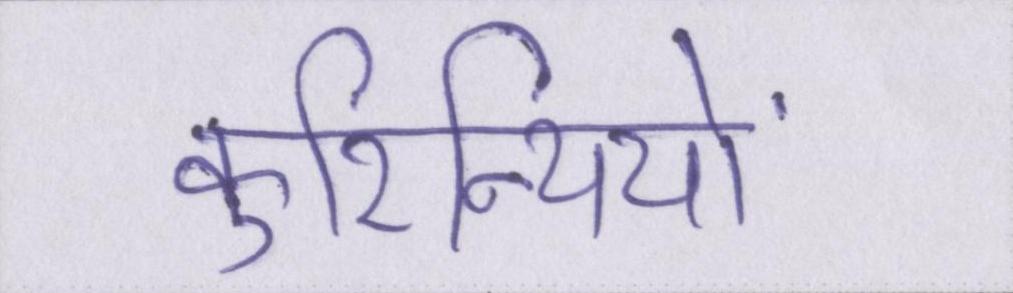 कुरिन्थियों